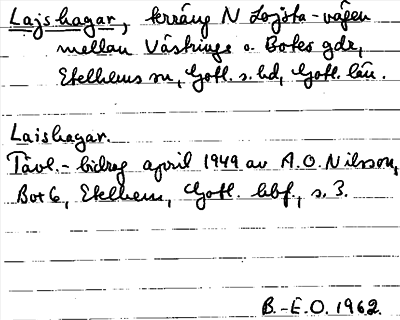 Lajshagar, terräng N Lojsta-vägen
mellan Västringe o. Botes gdr,
Etelhems sn, Gotl. s. hd, Gotl. län.
Laishagar.
Tävl.-bidrag april 1949 av A.O. Nilsson,
Box 6, Etelhem, Gotl. hbf, s. 3.
B.-E.O. 1962.